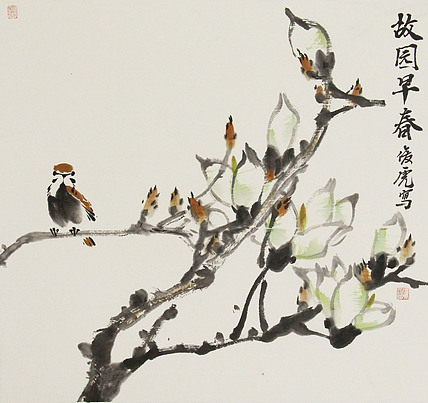 故园早春俊虎写